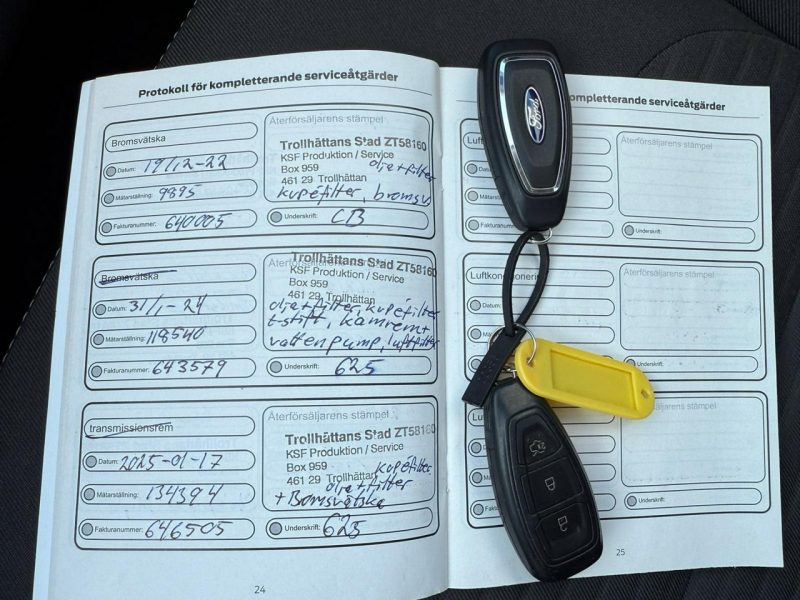 Protokoll för kompletterande serviceåtgärder
Bromsvätska
Datum: 19/12-22
Mätarställning: 9895
Fakturanummer: 640005
Återförsäljarens stämpel
Trollhättans Stad ZT58160
KSF Produktion / Service
Box 959 olja+filter
461 29 Trollhättan
kupéfilter, bromsv
Underskrift: CB
Bromsvätska
Datum: 31/1-24
Mätarställning: 118540
Fakturanummer: 643579
Återförsäljarens stämpel
Trollhättans Stad ZT58160
KSF Produktion / Service
Box 959
461 29 Trollhättan
olja+filter, kupéfilter
t-stift, kamrem+
vattenpump, luftfilter
Underskrift: 625
transmissionsrem
Datum: 2025-01-17
Mätarställning: 134394
Fakturanummer: 646505
Återförsäljarens stämpel
Trollhättans Stad ZT58160
KSF Produktion / Service
Box 959 kupéfilter
461 29 Trollhättan
olja+filter
+ Bromsvätska
Underskrift: 625
24
Ford
kompletterande serviceåtgärder
Datum:
Återförsäljarens stämpel
Underskrift:
Återförsäljarens stämpel
Datum:
Återförsäljarens stämpel
Underskrift:
25